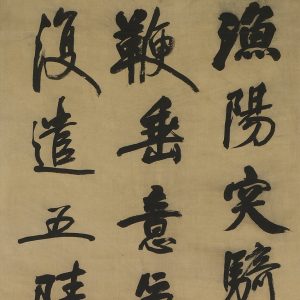 漁陽突騎
鞭垂意氣
復遣五陵